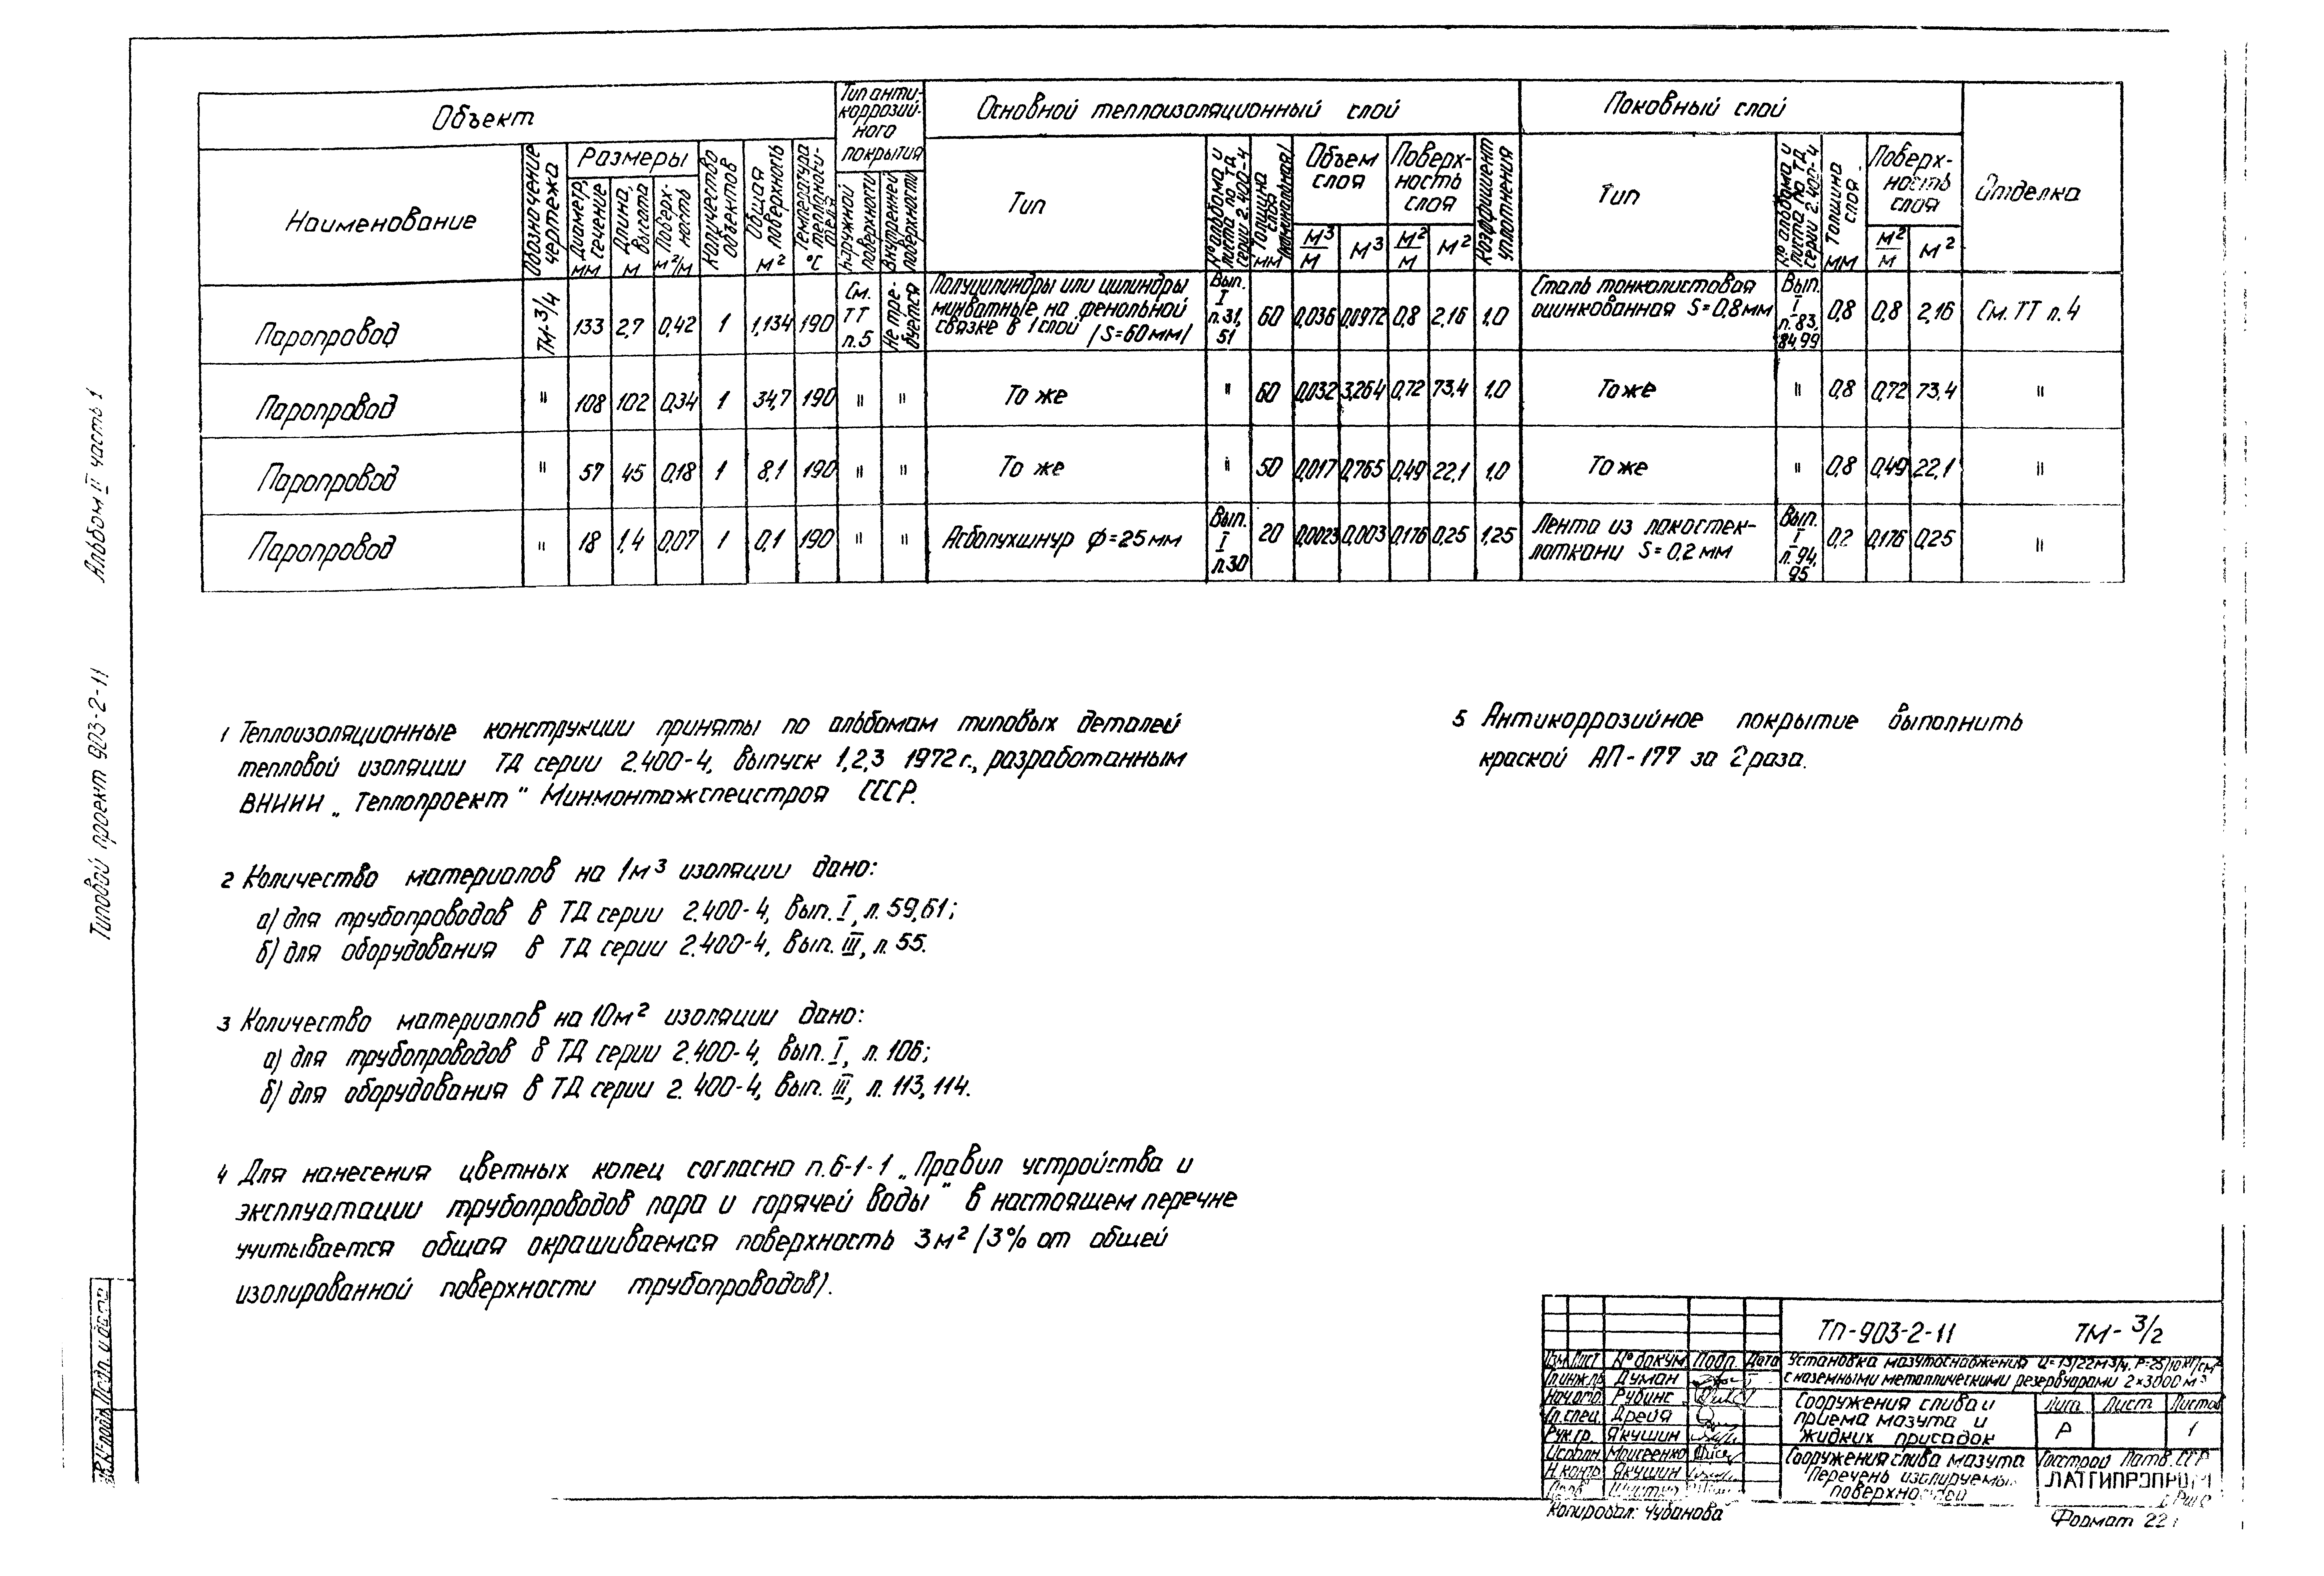 Объект
Тип анти-
коррозий-
ного
покрытия
Основной теплоизоляционный слой
Поковный слой
Отделка
Наименование
Обозначение чертежа
Размеры
Диаметр, сечение мм
Длина, высота м
Поверх-ность м²/м
Количество объектов
Общая поверхность м²
Температура теплоноси-теля °С
Наружной поверхности
Внутренней поверхности
Тип
№ альбома и листа по ТД серии 2.400-4
Толщина слоя /номинальная/ мм
Объем слоя
м³/м
м³
Поверх-
ность
слоя
м²/м
м²
Коэффициент уплотнения
Тип
№ альбома и листа по ТД серии 2.400-4
Толщина слоя мм
Поверх-
ность
слоя
м²/м
м²
Паропровод ТМ-3/4 133 2,7 0,42 1 1,134 190 См. ТТ п.5 Не тре-буется Полуцилиндры или цилиндры минватные на фенольной связке в 1 слой /S=60мм/ Вып. I л.31, 51 60 0,036 0,0972 0,8 2,16 1,0 Сталь тонколистовая оцинкованная S=0,8мм Вып. I л.83, 84,99 0,8 0,8 2,16 См. ТТ п.4
Паропровод " 108 102 0,34 1 34,7 190 " " То же " 60 0,032 3,264 0,72 73,4 1,0 То же " 0,8 0,72 73,4 "
Паропровод " 57 45 0,18 1 8,1 190 " " То же " 50 0,017 0,765 0,49 22,1 1,0 То же " 0,8 0,49 22,1 "
Паропровод " 18 1,4 0,07 1 0,1 190 " " Асбопухшнур ф=25мм Вып. I л.30 20 0,0023 0,003 0,176 0,25 1,25 Лента из лакостек-лоткани S=0,2мм Вып. I л.94, 95 0,2 0,176 0,25 "
1 Теплоизоляционные конструкции приняты по альбомам типовых деталей
тепловой изоляции ТД серии 2.400-4, выпуск 1,2,3 1972г., разработанным
ВНИИИ „Теплопроект" Минмонтажспецстроя СССР.
2 Количество материалов на 1м³ изоляции дано:
а) для трубопроводов в ТД серии 2.400-4, вып. I, л.59,61;
б) для оборудования в ТД серии 2.400-4, вып. III, л.55.
3 Количество материалов на 10м² изоляции дано:
а) для трубопроводов в ТД серии 2.400-4, вып. I, л. 106;
б) для оборудования в ТД серии 2.400-4, вып. III, л. 113, 114.
4 Для нанесения цветных колец согласно п.6-1-1 „Правил устройства и
эксплуатации трубопроводов пара и горячей воды" в настоящем перечне
учитывается общая окрашиваемая поверхность 3м² /3% от общей
изолированной поверхности трубопроводов).
5 Антикоррозийное покрытие выполнить
краской АП-177 за 2 раза.
Типовой проект 903-2-11 Альбом II часть 1
Подп. и дата
ТП-903-2-11 ТМ-3/2
Изм. Лист № докум. Подп. Дата
Установка мазутоснабжения Q=13/22м³/ч, Р=25/10кг/см²
с наземными металлическими резервуарами 2×3000м³
Гл.инж.пр. Думан
Нач.отд. Рубинс
Гл.спец. Дрейя
Рук.гр. Якушин
Исполн. Моисеенко
Н.контр. Якушин
Сооружения слива и
приема мазута и
жидких присадок
Лит. Лист Листов
Р 1
Сооружения слива мазута
Перечень изолируемых
поверхностей
Госстрой Латв.ССР
ЛАТГИПРОПРОМ
г. Рига
Копировал: Чубанова
Формат 22г